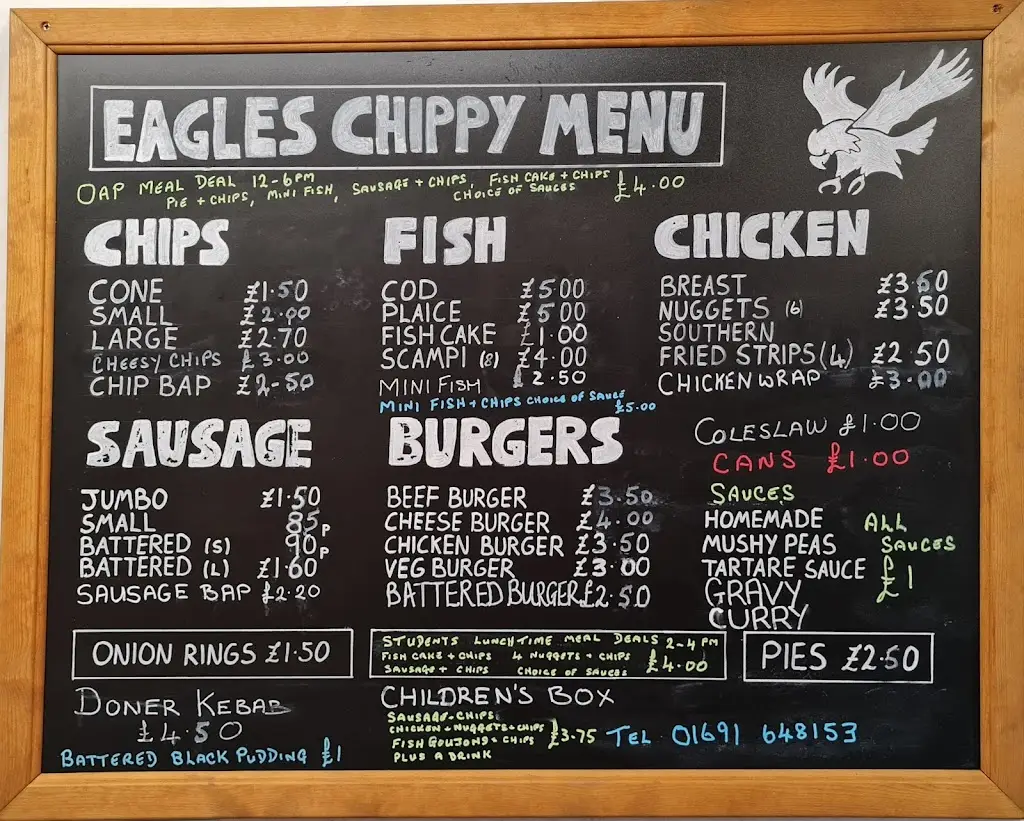 EAGLES CHIPPY MENU
OAP MEAL DEAL 12-6PM
PIE + CHIPS, MINI FISH, SAUSAGE + CHIPS, FISH CAKE + CHIPS £4.00
CHOICE OF SAUCES
CHIPS
CONE £1.50
SMALL £2.00
LARGE £2.70
CHEESY CHIPS £3.00
CHIP BAP £2.50
FISH
COD £5.00
PLAICE £5.00
FISH CAKE £1.00
SCAMPI (8) £4.00
MINI FISH £2.50
MINI FISH + CHIPS CHOICE OF SAUCE £5.00
CHICKEN
BREAST £3.50
NUGGETS (6) £3.50
SOUTHERN
FRIED STRIPS (4) £2.50
CHICKEN WRAP £3.00
SAUSAGE
JUMBO £1.50
SMALL 85p
BATTERED (S) 90p
BATTERED (L) £1.60
SAUSAGE BAP £2.20
BURGERS
BEEF BURGER £3.50
CHEESE BURGER £4.00
CHICKEN BURGER £3.50
VEG BURGER £3.00
BATTERED BURGER £2.50
COLESLAW £1.00
CANS £1.00
SAUCES
HOMEMADE
MUSHY PEAS
TARTARE SAUCE
GRAVY
CURRY
ALL
SAUCES
£1
ONION RINGS £1.50
STUDENTS LUNCHTIME MEAL DEALS 2-4 PM
FISH CAKE + CHIPS 4 NUGGETS + CHIPS
SAUSAGE + CHIPS CHOICE OF SAUCES £4.00
PIES £2.50
DONER KEBAB
£4.50
BATTERED BLACK PUDDING £1
CHILDREN'S BOX
SAUSAGE-CHIPS
CHICKEN + NUGGETS + CHIPS £3.75
FISH GOUJONS + CHIPS
PLUS A DRINK
TEL 01691 648153